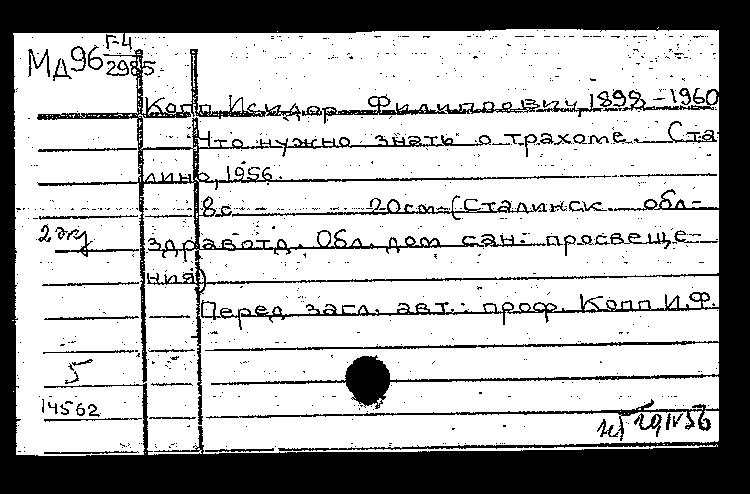 МД96 Г-4/2985
Копп, Исидор Филиппович, 1898-1960
Что нужно знать о трахоме. Ста-
лино, 1956.
8с. 20см. (Сталинск. обл-
здравотд. Обл. дом сан. просвеще-
ния)
2 экз
Перед загл. авт.: проф. Копп И.Ф.
5
14562
29IV56